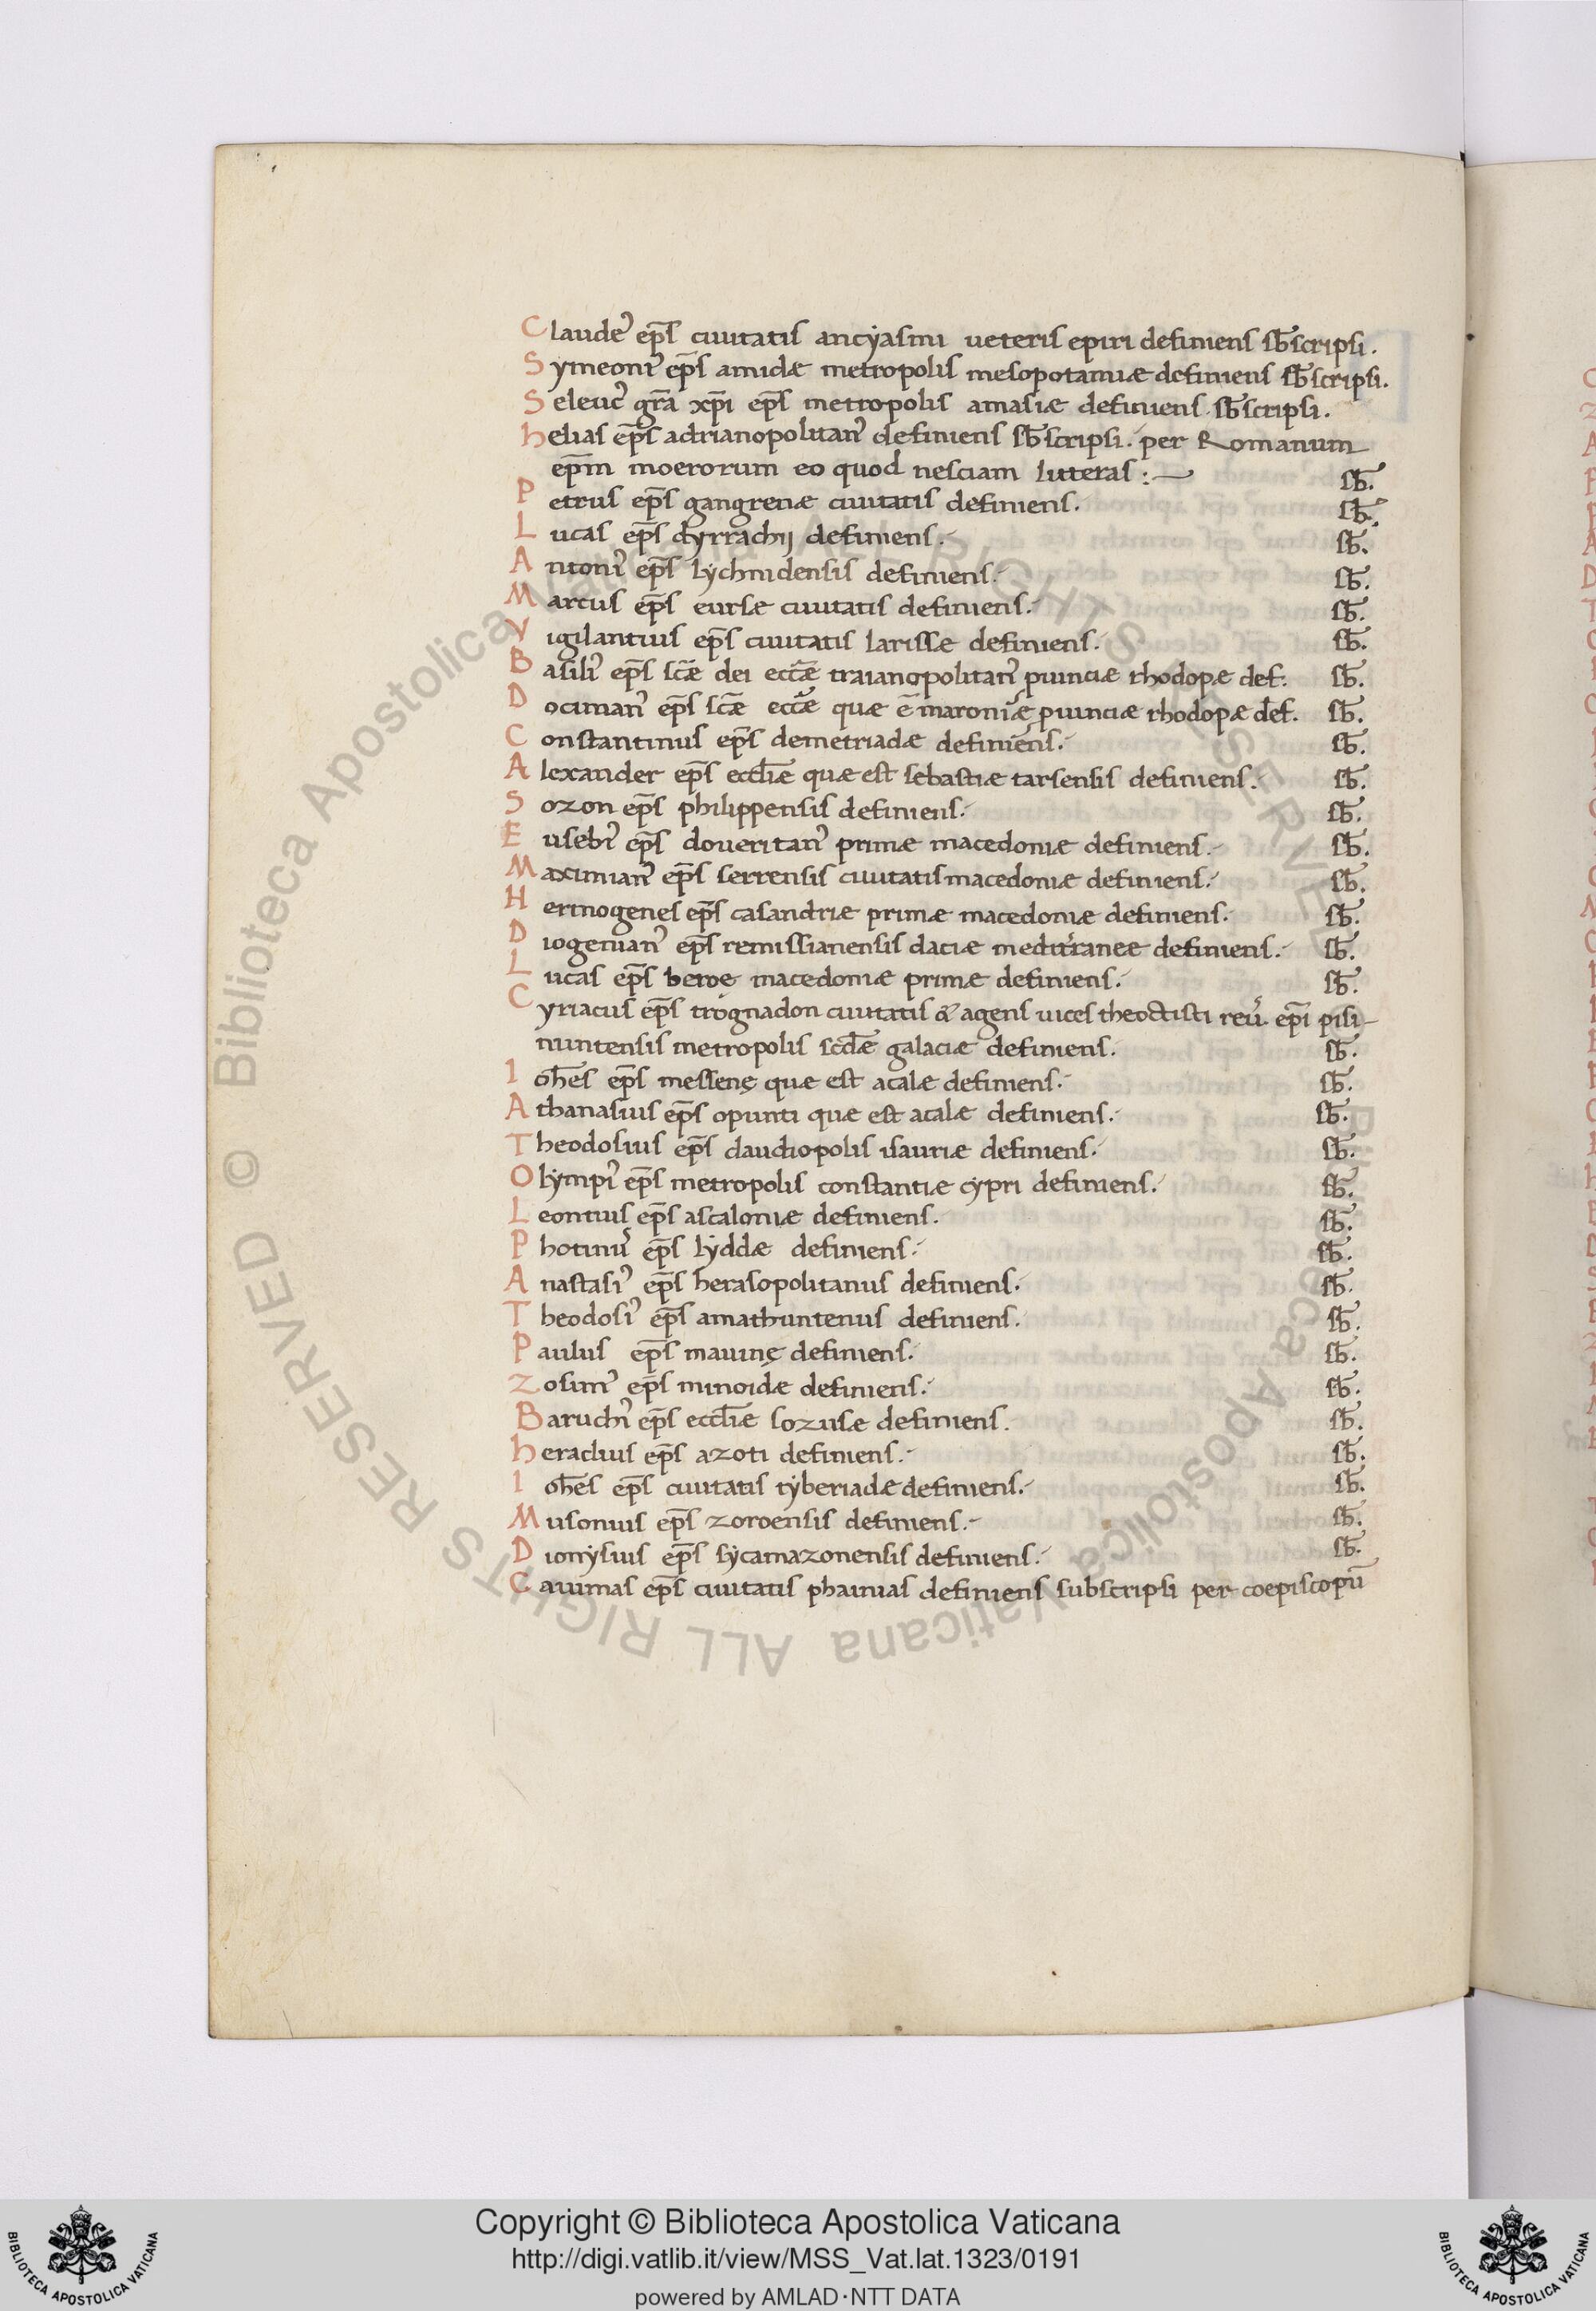 Claude᾿ ep̄s ciuitatis ancyasmi ueteris epiri definiens sb̄scripsi.
Symeoni᾿ ep̄s amidæ metropolis mesopotamiæ definiens sb̄scripsi.
Seleuc᾿ gr̄a xp̄i ep̄s metropolis amasiæ definiens sb̄scripsi.
helias ep̄s adrianopolitan᾿ definiens sb̄scripsi. per Romanum
ep̄m moerorum eo quod nesciam litteras :— sb̄.
Petrus ep̄s gangrenæ ciuitatis definiens. sb̄.
Lucas ep̄s dyrrachij definiens. sb̄.
Antoni᾿ ep̄s lychnidensis definiens. sb̄.
Marcus ep̄s eursæ ciuitatis definiens. sb̄.
Vigilantius ep̄s ciuitatis larissæ definiens. sb̄.
Basili᾿ ep̄s sc̄æ dei ecc̄æ traianopolitan᾿ puinciæ rhodopæ def. sb̄.
Dociman᾿ ep̄s sc̄æ ecc̄æ quæ ē maroniæ puinciæ rhodopæ def. sb̄.
Constantinus ep̄s demetriadæ definiens. sb̄.
Alexander ep̄s eccl̄iæ quæ est sebastiæ tarsensis definiens. sb̄.
Sozon ep̄s philippensis definiens. sb̄.
Eusebi᾿ ep̄s doueritan᾿ primæ macedoniæ definiens. sb̄.
Maximian᾿ ep̄s serrensis ciuitatis macedoniæ definiens. sb̄.
Hermogenes ep̄s casandriæ primæ macedoniæ definiens. sb̄.
Diogenian᾿ ep̄s remissianensis daciæ medit᾿raneæ definiens. sb̄.
Lucas ep̄s beroę macedoniæ primæ definiens. sb̄.
Cyriacus ep̄s trognadon ciuitatis & agens uices theoctisti reu᾿. ep̄i pisi-
nuntensis metropolis sc̄dæ galaciæ definiens. sb̄.
Ioh̄es ep̄s messenę quæ est acaiæ definiens. sb̄.
Athanasius ep̄s opunti quæ est acaiæ definiens. sb̄.
Theodosius ep̄s claudiopolis isauriæ definiens. sb̄.
Olympi᾿ ep̄s metropolis constantiæ cypri definiens. sb̄.
Leontius ep̄s ascaloniæ definiens. sb̄.
Photinu᾿ ep̄s lyddæ definiens. sb̄.
Anastasi᾿ ep̄s herasopolitanus definiens. sb̄.
Theodosi᾿ ep̄s amathuntenus definiens. sb̄.
Paulus ep̄s mauinę definiens. sb̄.
Zosim᾿ ep̄s minoidæ definiens. sb̄.
Baruchi᾿ ep̄s eccl̄iæ sozusæ definiens. sb̄.
heraclius ep̄s azoti definiens. sb̄.
Ioh̄es ep̄s ciuitatis tyberiadæ definiens. sb̄.
Musonius ep̄s zoroensis definiens. sb̄.
Dionysius ep̄s sycamazonensis definiens. sb̄.
Cauimas ep̄s ciuitatis phainias definiens subscripsi per coepiscopū
© Biblioteca Apostolica Vaticana ALL RIGHTS RESERVED
Copyright © Biblioteca Apostolica Vaticana
http://digi.vatlib.it/view/MSS_Vat.lat.1323/0191
powered by AMLAD·NTT DATA
BIBLIOTECA APOSTOLICA VATICANA
BIBLIOTECA APOSTOLICA VATICANA